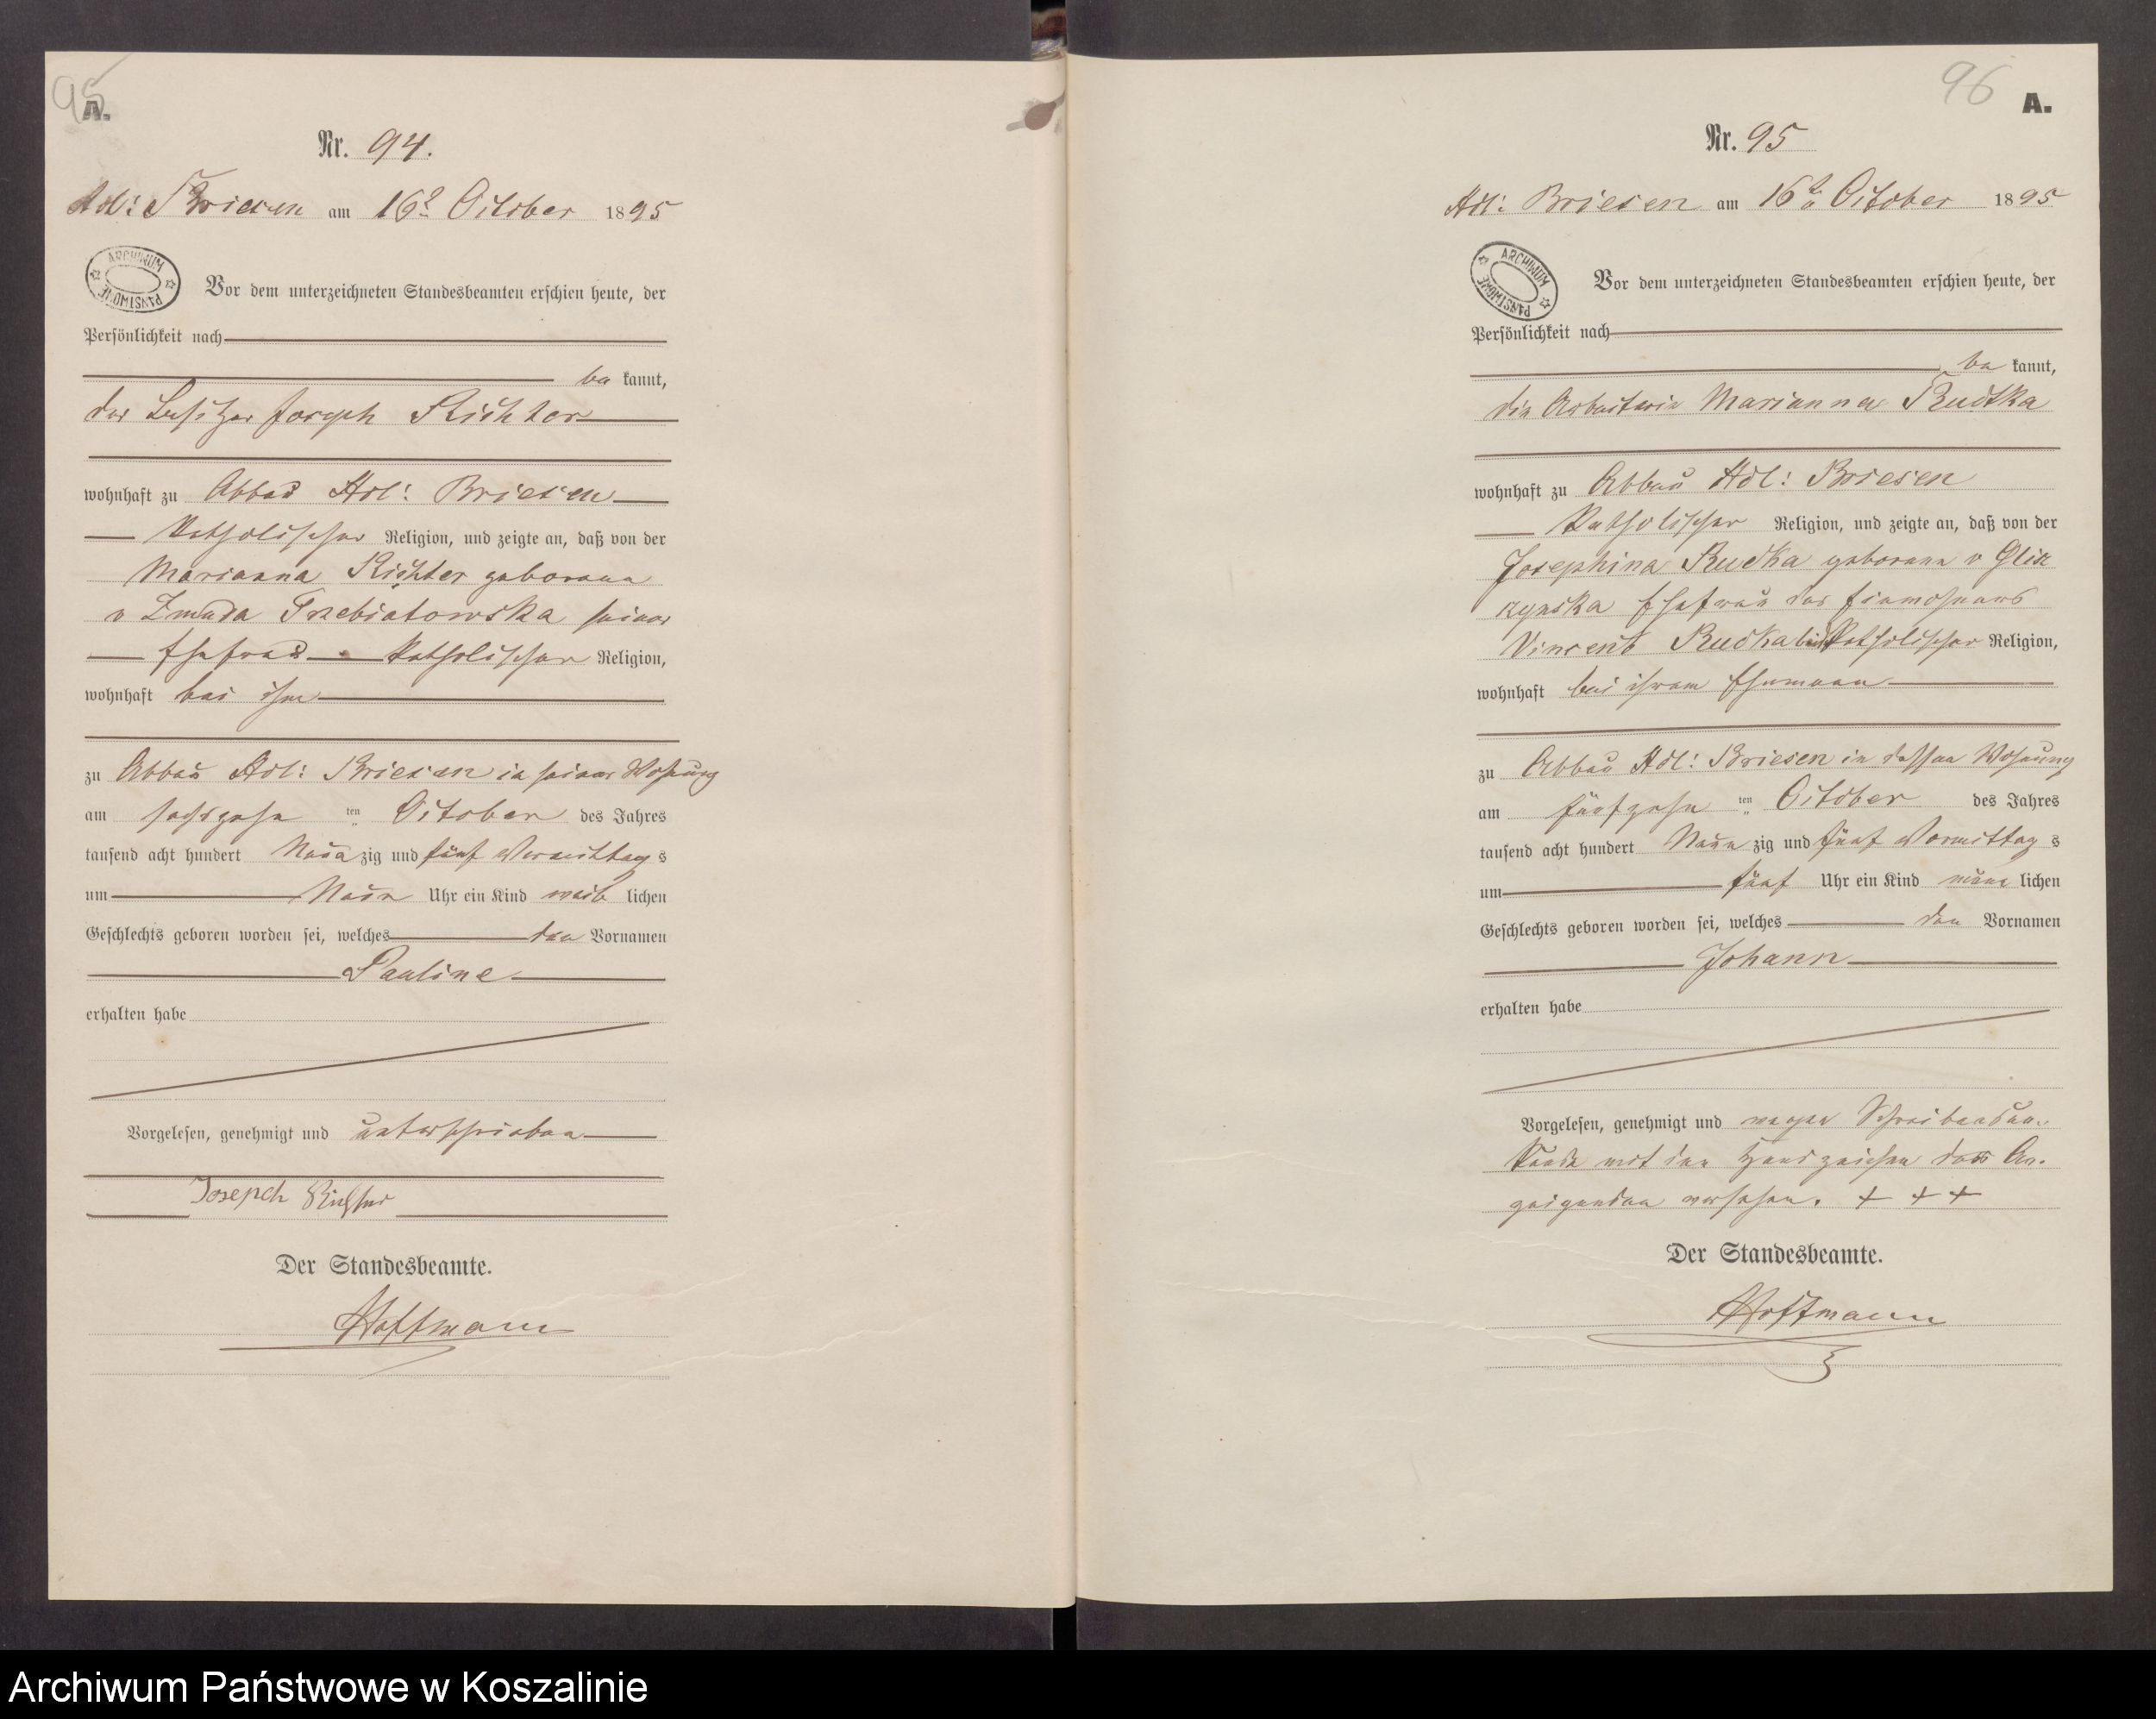 95
A.
Nr. 94.
Adl: Briesen am 16t October 1895
ARCHIWUM PAŃSTWOWE
Vor dem unterzeichneten Standesbeamten erschien heute, der
Persönlichkeit nach
be kannt,
der Besitzer Joseph Richter
wohnhaft zu Abbau Adl: Briesen
katholischer Religion, und zeigte an, daß von der
Marianna Richter geborene
v Zmuda Trzebiatowska seiner
Ehefrau katholischer Religion,
wohnhaft bei ihm
zu Abbau Adl: Briesen in seiner Wohnung
am sechszehn ten October des Jahres
tausend acht hundert Neun zig und fünf Vormittag s
um Neun Uhr ein Kind weib lichen
Geschlechts geboren worden sei, welches den Vornamen
Pauline
erhalten habe
Vorgelesen, genehmigt und unterschrieben
Josepch Richter
Der Standesbeamte.
Hoffmann
96
A.
Nr. 95
Adl: Briesen am 16t October 1895
ARCHIWUM PAŃSTWOWE
Vor dem unterzeichneten Standesbeamten erschien heute, der
Persönlichkeit nach
be kannt,
die Arbeiterin Marianna Rudtka
wohnhaft zu Abbau Adl: Briesen
katholischer Religion, und zeigte an, daß von der
Josephina Rudka geborene v Glis
czynska Ehefrau des Einwohners
Vincent Rudka katholischer Religion,
wohnhaft bei ihrem Ehemann
zu Abbau Adl: Briesen in dessen Wohnung
am fünfzehn ten October des Jahres
tausend acht hundert Neun zig und fünf Vormittag s
um fünf Uhr ein Kind männ lichen
Geschlechts geboren worden sei, welches den Vornamen
Johann
erhalten habe
Vorgelesen, genehmigt und wegen Schreibensun-
kunde mit den Handzeichen der An-
zeigenden versehen. + + +
Der Standesbeamte.
Hoffmann
Archiwum Państwowe w Koszalinie